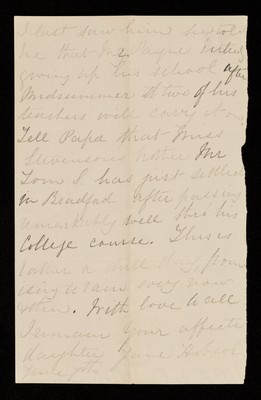 I last saw him he told
me that Mr Payne intends
giving up his school after
Midsummer & two of his
teachers will carry it on
Tell Papa that Miss
Stevenson's brother Mr
Tom S. has just settled
in Bradford after passing
remarkably well thro his
College course. This is
rather a dull day from
very rain every now
& then. With love to all
I remain your affecte
daughter Jane Hobson